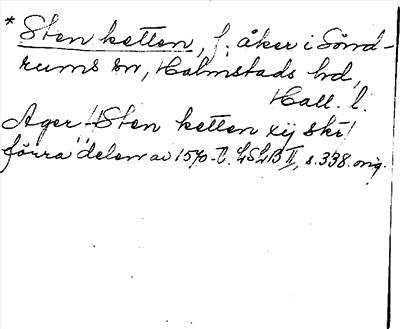 *Stenketten, f. åker i Sönd-
rums sn, Halmstads hd,
Hall. l.
Ager Stenketten xij skr
förra delen av 1570-t. LSLB II, s. 338. orig.